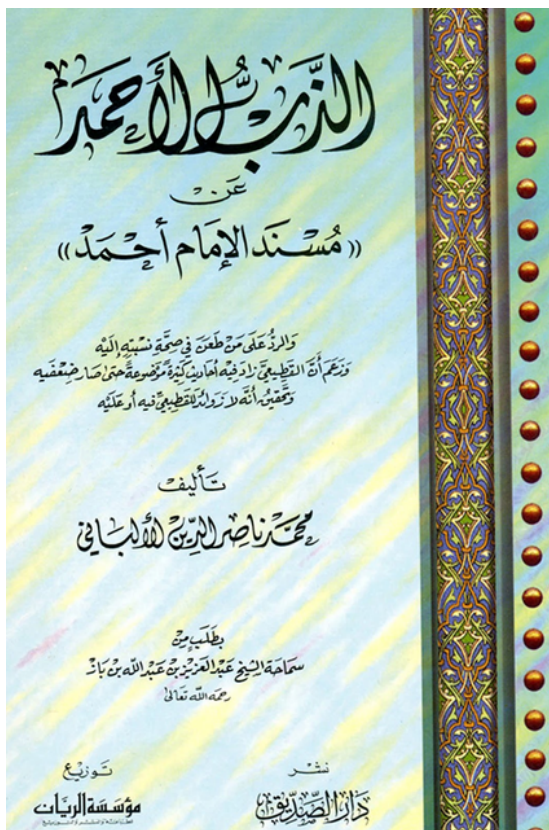 الذَّبُّ الأَحْمَدُ
عَنْ
«مُسْنَدِ الإِمَامِ أَحْمَدْ»
وَالرَّدُّ عَلَى مَنْ طَعَنَ فِي صِحَّةِ نِسْبَتِهِ إِلَيْهِ
وَزَعَمَ أَنَّ القَطِيعِيَّ زَادَ فِيهِ أَحَادِيثَ كَثِيرَةً مَوْضُوعَةً حَتَّى صَارَ ضِعْفَيْهِ
وَتَحْقِيقُ أَنَّهُ لَا زَوَائِدَ لِلقَطِيعِيِّ فِيهِ أَوْ عَلَيْهِ
تَأْلِيفُ
مُحَمَّد نَاصِر الدِّين الأَلْبَانِي
بِطَلَبٍ مِنْ
سَمَاحَة الشَّيْخ عَبْد العَزِيز بْن عَبْد الله بْن بَاز
رحمه الله تعالى
نَشْر
تَوْزِيع
دَارُ الصِّدِّيق
مؤسسة الريان